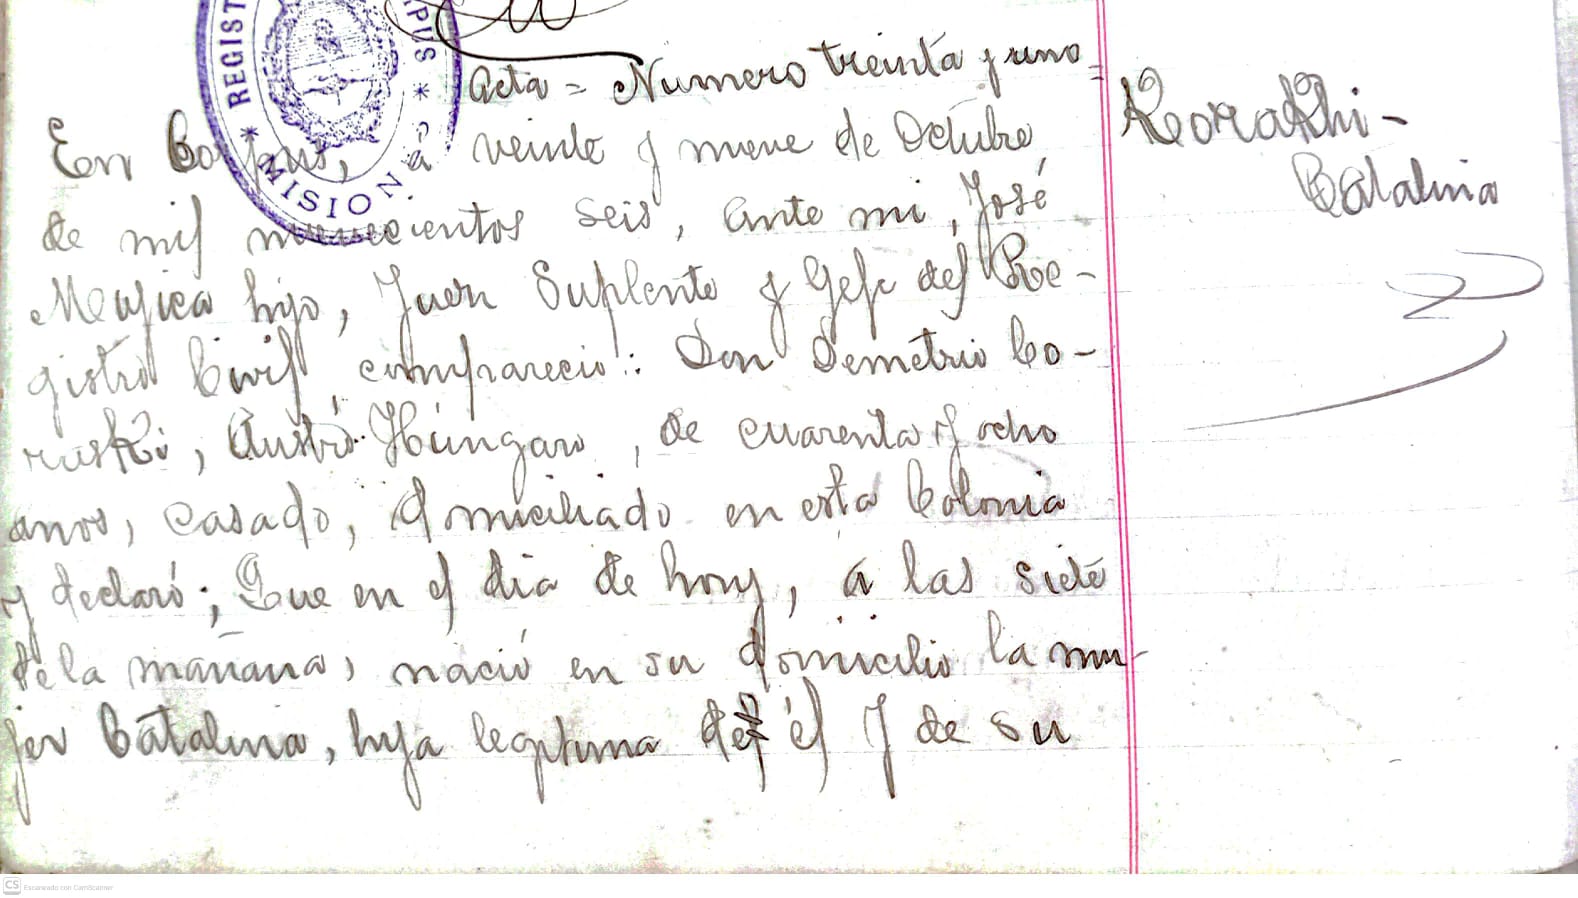 REGIST
MISION
Acta = Numero treinta y uno
En Corpus, a veinte y nueve de Octubre
de mil novecientos seis, ante mi, José
Mujica hijo, Juez Suplente y Gefe del Re-
gistro Civil compareció: Don Demetrio Co-
ruski, Austro-Húngaro, de cuarenta y ocho
anos, casado, domiciliado en esta Colonia
y declaró; Que en el dia de hoy, a las siete
de la mañana, nació en su domicilio la mu-
jer Catalina, hija legitima de él y de su
Catalina
CS Escaneado con CamScanner